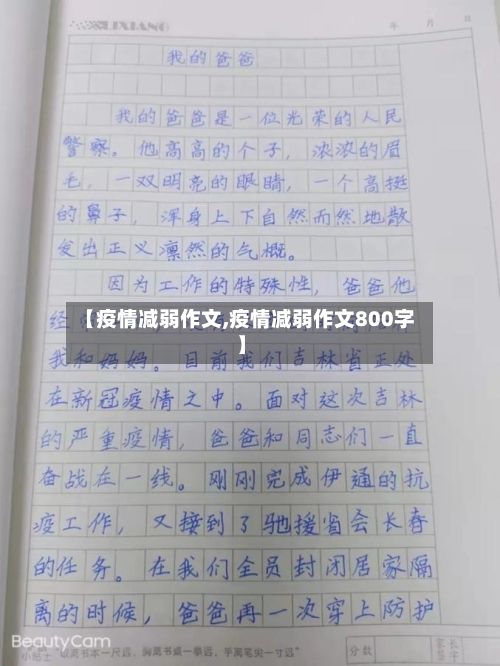 LIXIANG
年 月 日
我的爸爸
我的爸爸是一位光荣的人民
警察。他高高的个子，浓浓的眉
毛，一双明亮的眼睛，一个高挺
的鼻子，浑身上下自然而然地散
发出正义凛然的气概。
因为工作的特殊性，爸爸他
经
【疫情减弱作文,疫情减弱作文800字
】
我和妈妈。目前我们吉林省正处
在新冠疫情之中。面对这次吉林
的严重疫情，爸爸和同志们一直
奋战在一线。刚刚完成伊通的抗
疫工作，又接到了驰援省会长春
的任务。在我们全员封闭居家隔
离的时候，爸爸再一次穿上防护
BeautyCam
小贴士 眼离书本一尺远，胸离书桌一拳远，手离笔尖一寸远
分数
家长
签字